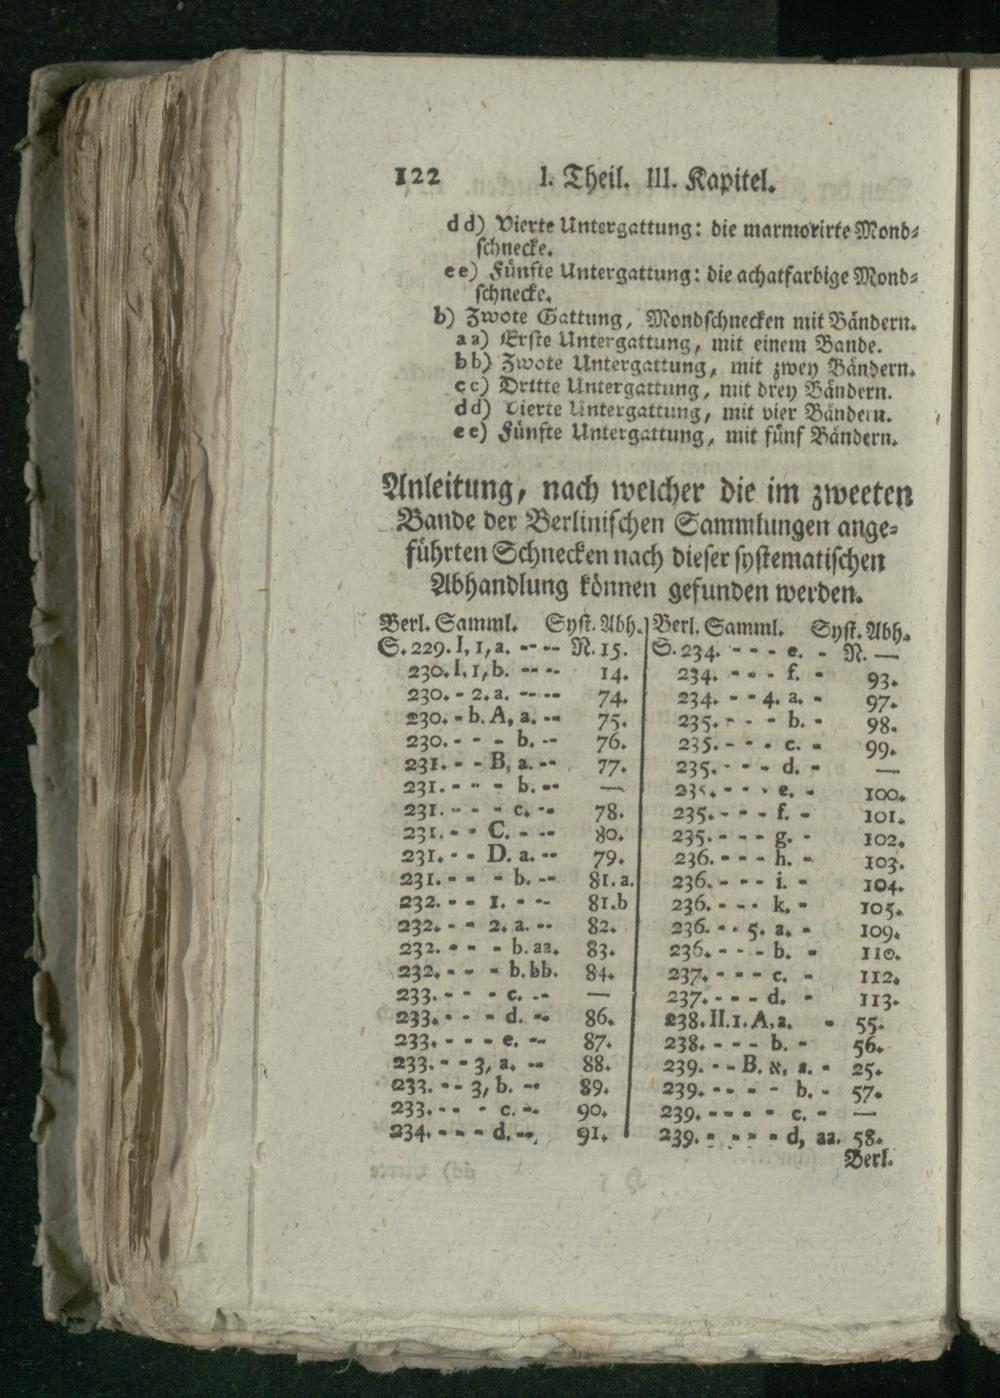 122 I. Theil. III. Kapitel.
dd) Vierte Untergattung: die marmorirte Mond-
schnecke.
ee) Fünfte Untergattung: die achatfarbige Mond-
schnecke.
b) Zwote Gattung, Mondschnecken mit Bändern.
aa) Erste Untergattung, mit einem Bande.
bb) Zwote Untergattung, mit zwey Bändern.
cc) Dritte Untergattung, mit drey Bändern.
dd) Vierte Untergattung, mit vier Bändern.
ee) Fünfte Untergattung, mit fünf Bändern.
Anleitung, nach welcher die im zweeten
Bande der Berlinischen Sammlungen ange-
führten Schnecken nach dieser systematischen
Abhandlung können gefunden werden.
Berl. Samml. Syst. Abh.
S. 229. I, 1, a. - - - - N. 15.
230. I, 1, b. - - - - 14.
230. - 2. a. - - - - 74.
230. - b. A, a. - - 75.
230. - - - b. - - 76.
231. - - B, a. - - 77.
231. - - - b. - - —
231. - - - c. - - 78.
231. - - C. - - - 80.
231. - - D. a. - - 79.
231. - - - b. - - 81. a.
232. - - 1. - - - 81. b
232. - - 2. a. - - 82.
232. - - - b. aa. 83.
232. - - - b. bb. 84.
233. - - - c. - - —
233. - - - d. - - 86.
233. - - - e. - - 87.
233. - - 3, a. - - 88.
233. - - 3, b. - - 89.
233. - - - c. - - 90.
234. - - - d. - - 91.
Berl. Samml. Syst. Abh.
S. 234. - - - e. - N. —
234. - - - f. - 93.
234. - - 4. a. - 97.
235. - - - b. - 98.
235. - - - c. - 99.
235. - - - d. - —
235. - - - e. - 100.
235. - - - f. - 101.
235. - - - g. - 102.
236. - - - h. - 103.
236. - - - i. - 104.
236. - - - k. - 105.
236. - - 5. a. - 109.
236. - - - b. - 110.
237. - - - c. - 112.
237. - - - d. - 113.
238. II. 1. A, a. - 55.
238. - - - b. - 56.
239. - - B. א, a. - 25.
239. - - - - b. - 57.
239. - - - - c. - —
239. - - - - d, aa. 58.
Berl.